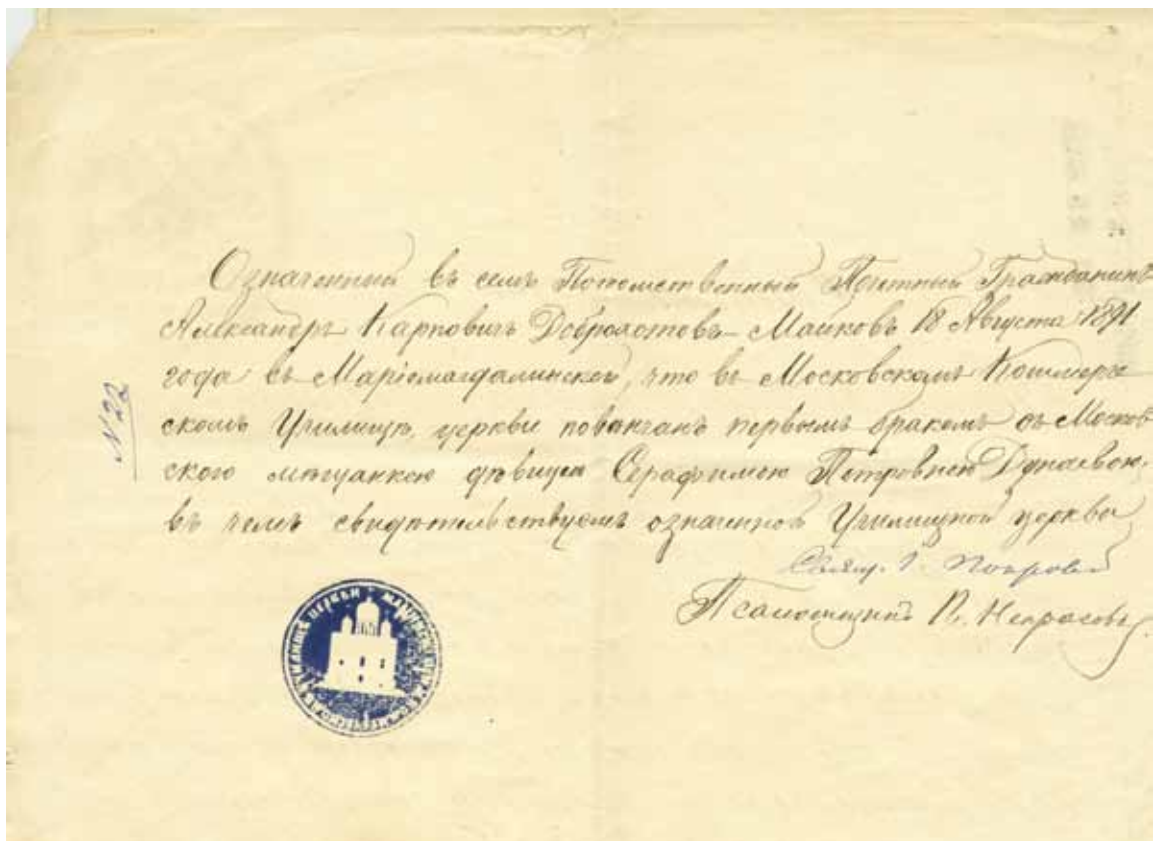 Означенный въ семъ Потомственный Почетный Гражданинъ
Александръ Карповичъ Доброхотовъ-Майковъ 18 Августа 1891
года въ Маріемагдалинской, что въ Московскомъ Коммерче
скомъ Училищѣ, церкви повѣнчанъ первымъ бракомъ съ Москов
ского мѣщанкою дѣвицею Серафимою Петровною Дунаевою,
въ чемъ свидѣтельствуемъ означенной Училищной церкви
№ 22
Свящ. І. Покровскій
Псаломщикъ П. Некрасовъ.